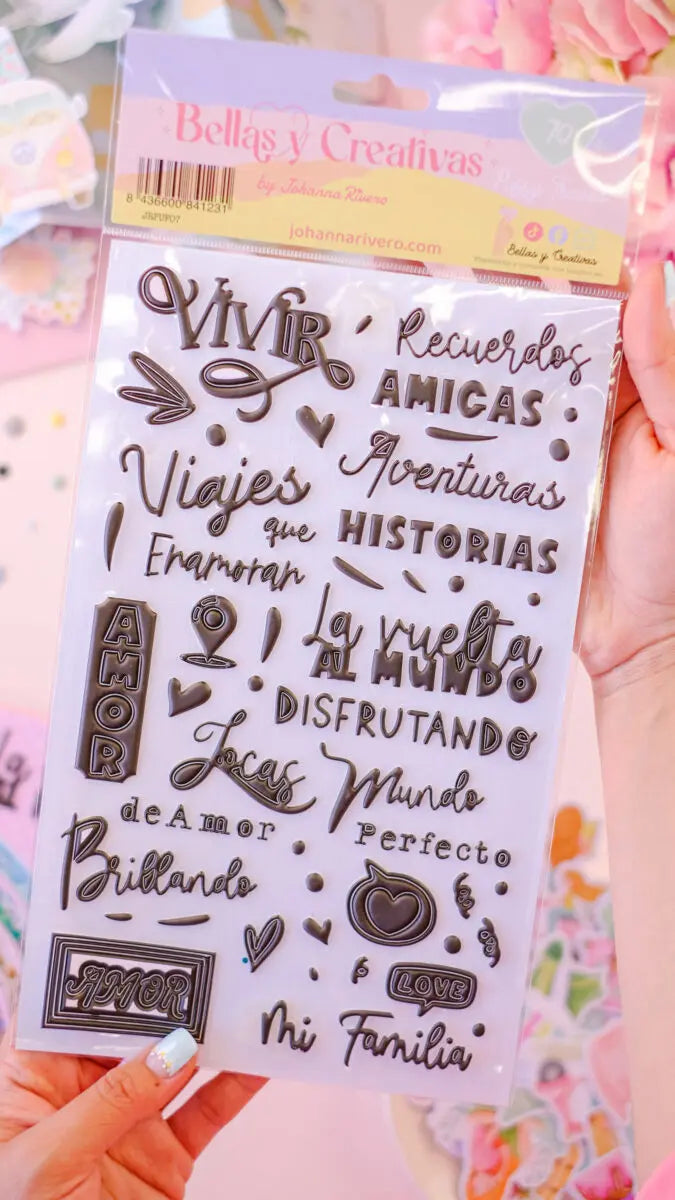 Bellas y Creativas
by Johanna Rivero
8 436600 841231
JRPUF07
johannarivero.com
Bellas y Creativas
VIVIR
Recuerdos
AMIGAS
Viajes
Aventuras
que
HISTORIAS
Enamoran
AMOR
La vuelta
AL MUNDO
DISFRUTANDO
Locas
Mundo
de Amor
Perfecto
Brillando
AMOR
LOVE
Mi Familia